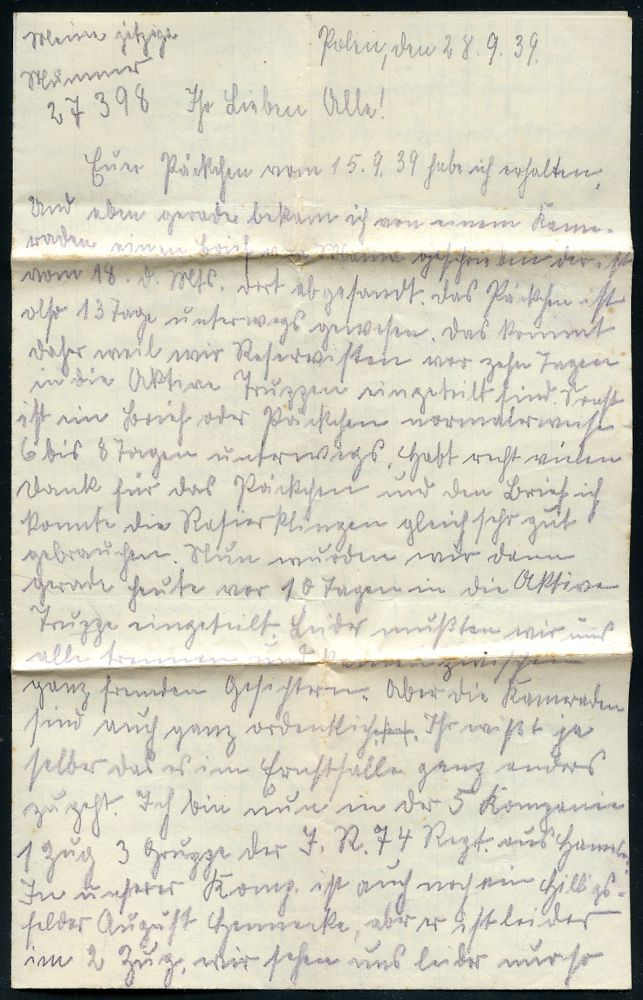 Meine jetzige
Nummer
27398
Polen, den 28.9.39.
Ihr Lieben Alle!
Euer Päckchen vom 15.9.39 habe ich erhalten,
Und eben gerade bekam ich von einem Kame-
raden einen Brief von Mama geschrieben der ist
vom 18. d. Mts. dort abgesandt. Das Päckchen ist
also 13 Tage unterwegs gewesen. Das kommt
daher weil wir Reservisten vor zehn Tagen
in die Aktive Truppen eingeteilt sind. Sonst
ist ein Brief oder Päckchen normalerweise
6 bis 8 Tagen unterwegs. Habt recht vielen
Dank für das Päckchen und den Brief ich
konnte die Rasierklingen gleich sehr gut
gebrauchen. Nun wurden wir dann
gerade heute vor 10 Tagen in die Aktive
Truppe eingeteilt. Leider mußten wir uns
alle trennen und kamen zwischen
ganz fremden Gesichtern. Aber die Kameraden
sind auch ganz ordentlich. Ihr wißt ja
selber das es im Ernstfalle ganz anders
zu geht. Ich bin nun in der 5 Kompanie
1 Zug 3 Gruppe der I. R. 74 Regt. aus Hameln.
In unserer Komp. ist auch noch ein Hilligs-
felder August Hennecke, aber er ist leider
im 2 Zug, wir sehen uns leider nur so